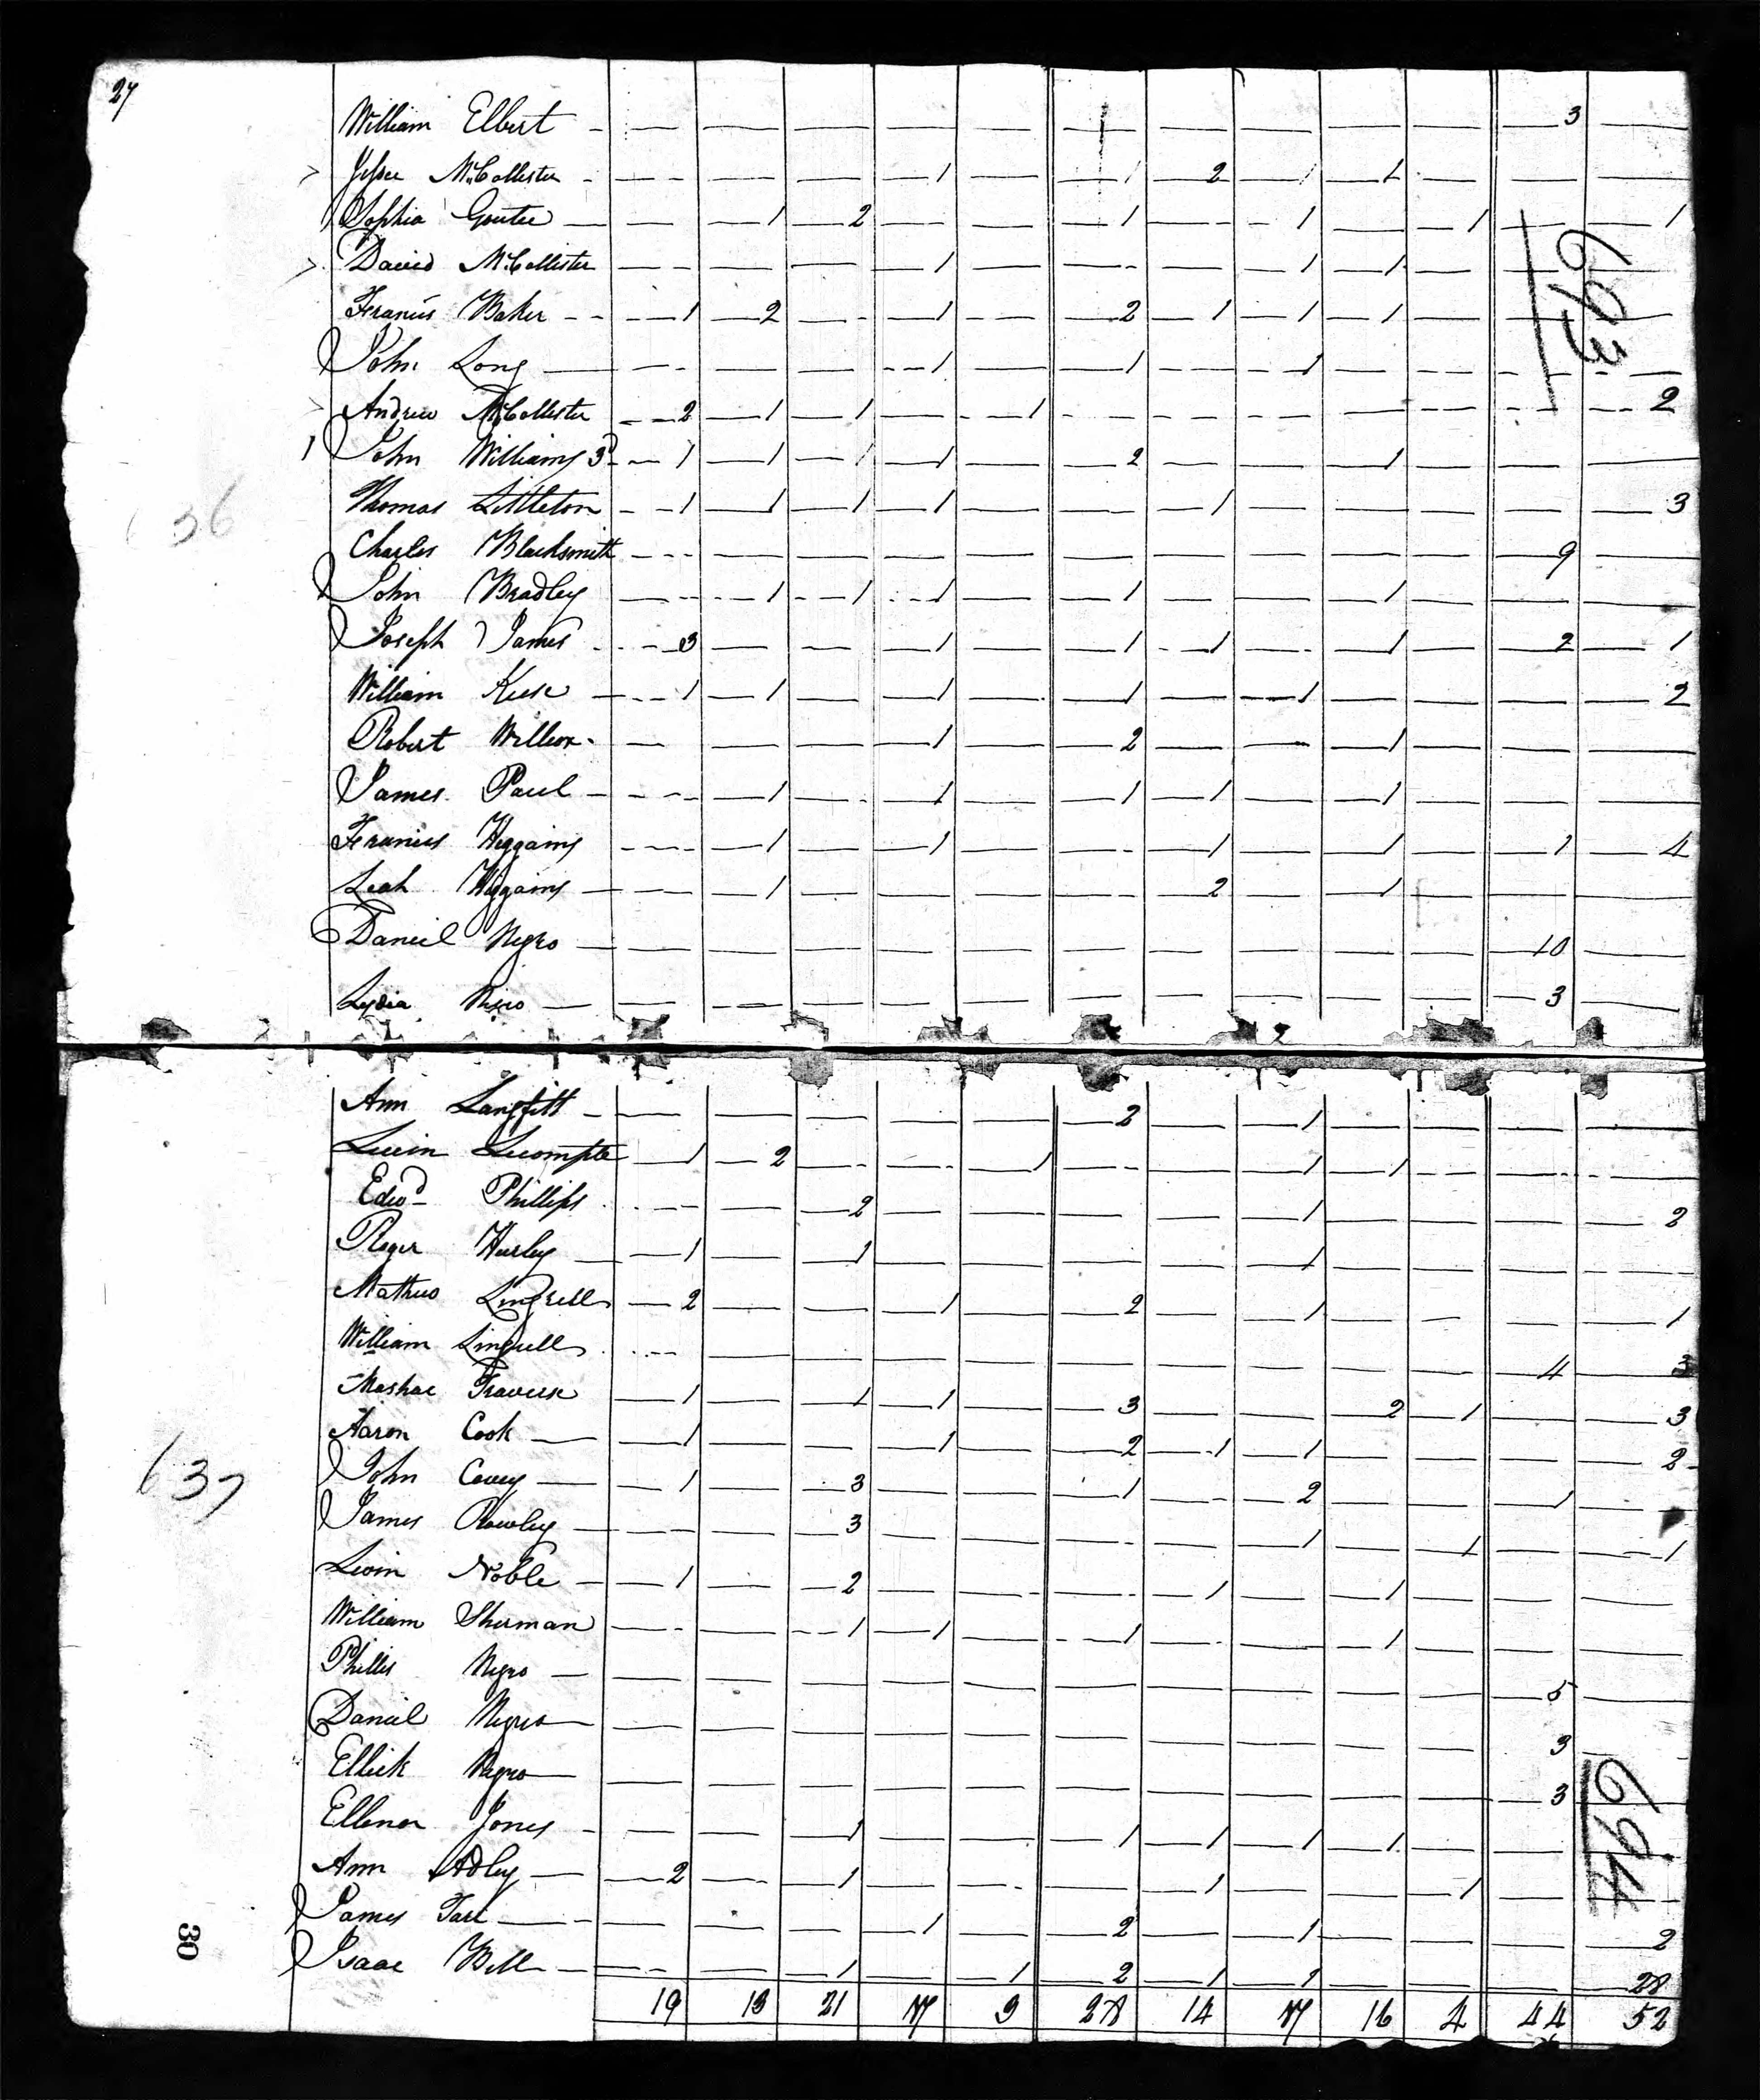 27
William Elbert - — — — — — — — — — — 3 —
Jesse McCollister - — — — 1 — 1 2 1 1 — — —
Sophia — — 1 2 — — 1 — 1 — 1 — 1
David McCollister — — — 1 — — — 1 1 — — —
693
Francis Baker - - 1 2 — 1 — 2 1 1 1 — — —
John Long — — — — 1 — 1 — 1 — — — —
Andrew McCollister 2 1 1 — 1 — — — — — — 2
1 John Williams 3d 1 1 1 1 — 2 — — 1 — — —
Thomas Littleton 1 1 1 1 — — 1 — — — — 3
636
Charles Blacksmith — — — — — — — — — — 9 —
John Bradley — 1 1 1 — 1 — — 1 — — —
Joseph James 3 — — 1 — 1 1 — 1 — 2 1
William 1 1 — 1 — 1 — 1 — — — 2
Robert Willcox - — — — 1 — 2 — — 1 — — —
James Paul — — 1 — 1 — 1 1 — 1 — — —
Francis Higgains — 1 — 1 — — 1 — 1 — 1 4
Leah Higgains — — 1 — — — — 2 — 1 — — —
Daniel Negro — — — — — — — — — — — 10 —
Lydia Negro — — — — — — — — — — — 3 —
Ann Langfitt - — — — — — 2 — 1 — — — —
Levin Lecompte 1 2 — — 1 — — 1 1 — — —
Edwd Phillips — — 2 — — — — 1 — — — 2
Roger Hurley — 1 — 1 — — — — 1 — — — —
Mathew Lingrell 2 — — 1 — 2 — 1 — — — 1
William Lingrell — — — — — — — — — — 4 3
Traverse 1 — 1 1 — 3 — — 2 1 — 3
Aaron Cook — 1 — — 1 — 2 1 1 — — — 2
637
John Covey — 1 — 3 — — 1 — 2 — — 1 —
James Rowley — — — 3 — — — — 1 — 1 — 1
Levin Noble — 1 — 2 — — — 1 — 1 — — —
William Shurman — — 1 1 — 1 — — 1 — — —
Phillis Negro — — — — — — — — — — — 5 —
Daniel Negro — — — — — — — — — — — 3 —
Ellick Negro — — — — — — — — — — — 3 —
694
Ellenor Jones - — — 1 — — 1 1 1 1 — — —
Ann Adley — 2 — 1 — — — 1 — — 1 — —
James — — — — 1 — 2 — 1 — — — 2
30
Isaac Bell — — — 1 — 1 2 1 1 — — — 28
19 13 21 17 3 28 14 17 16 4 44 52